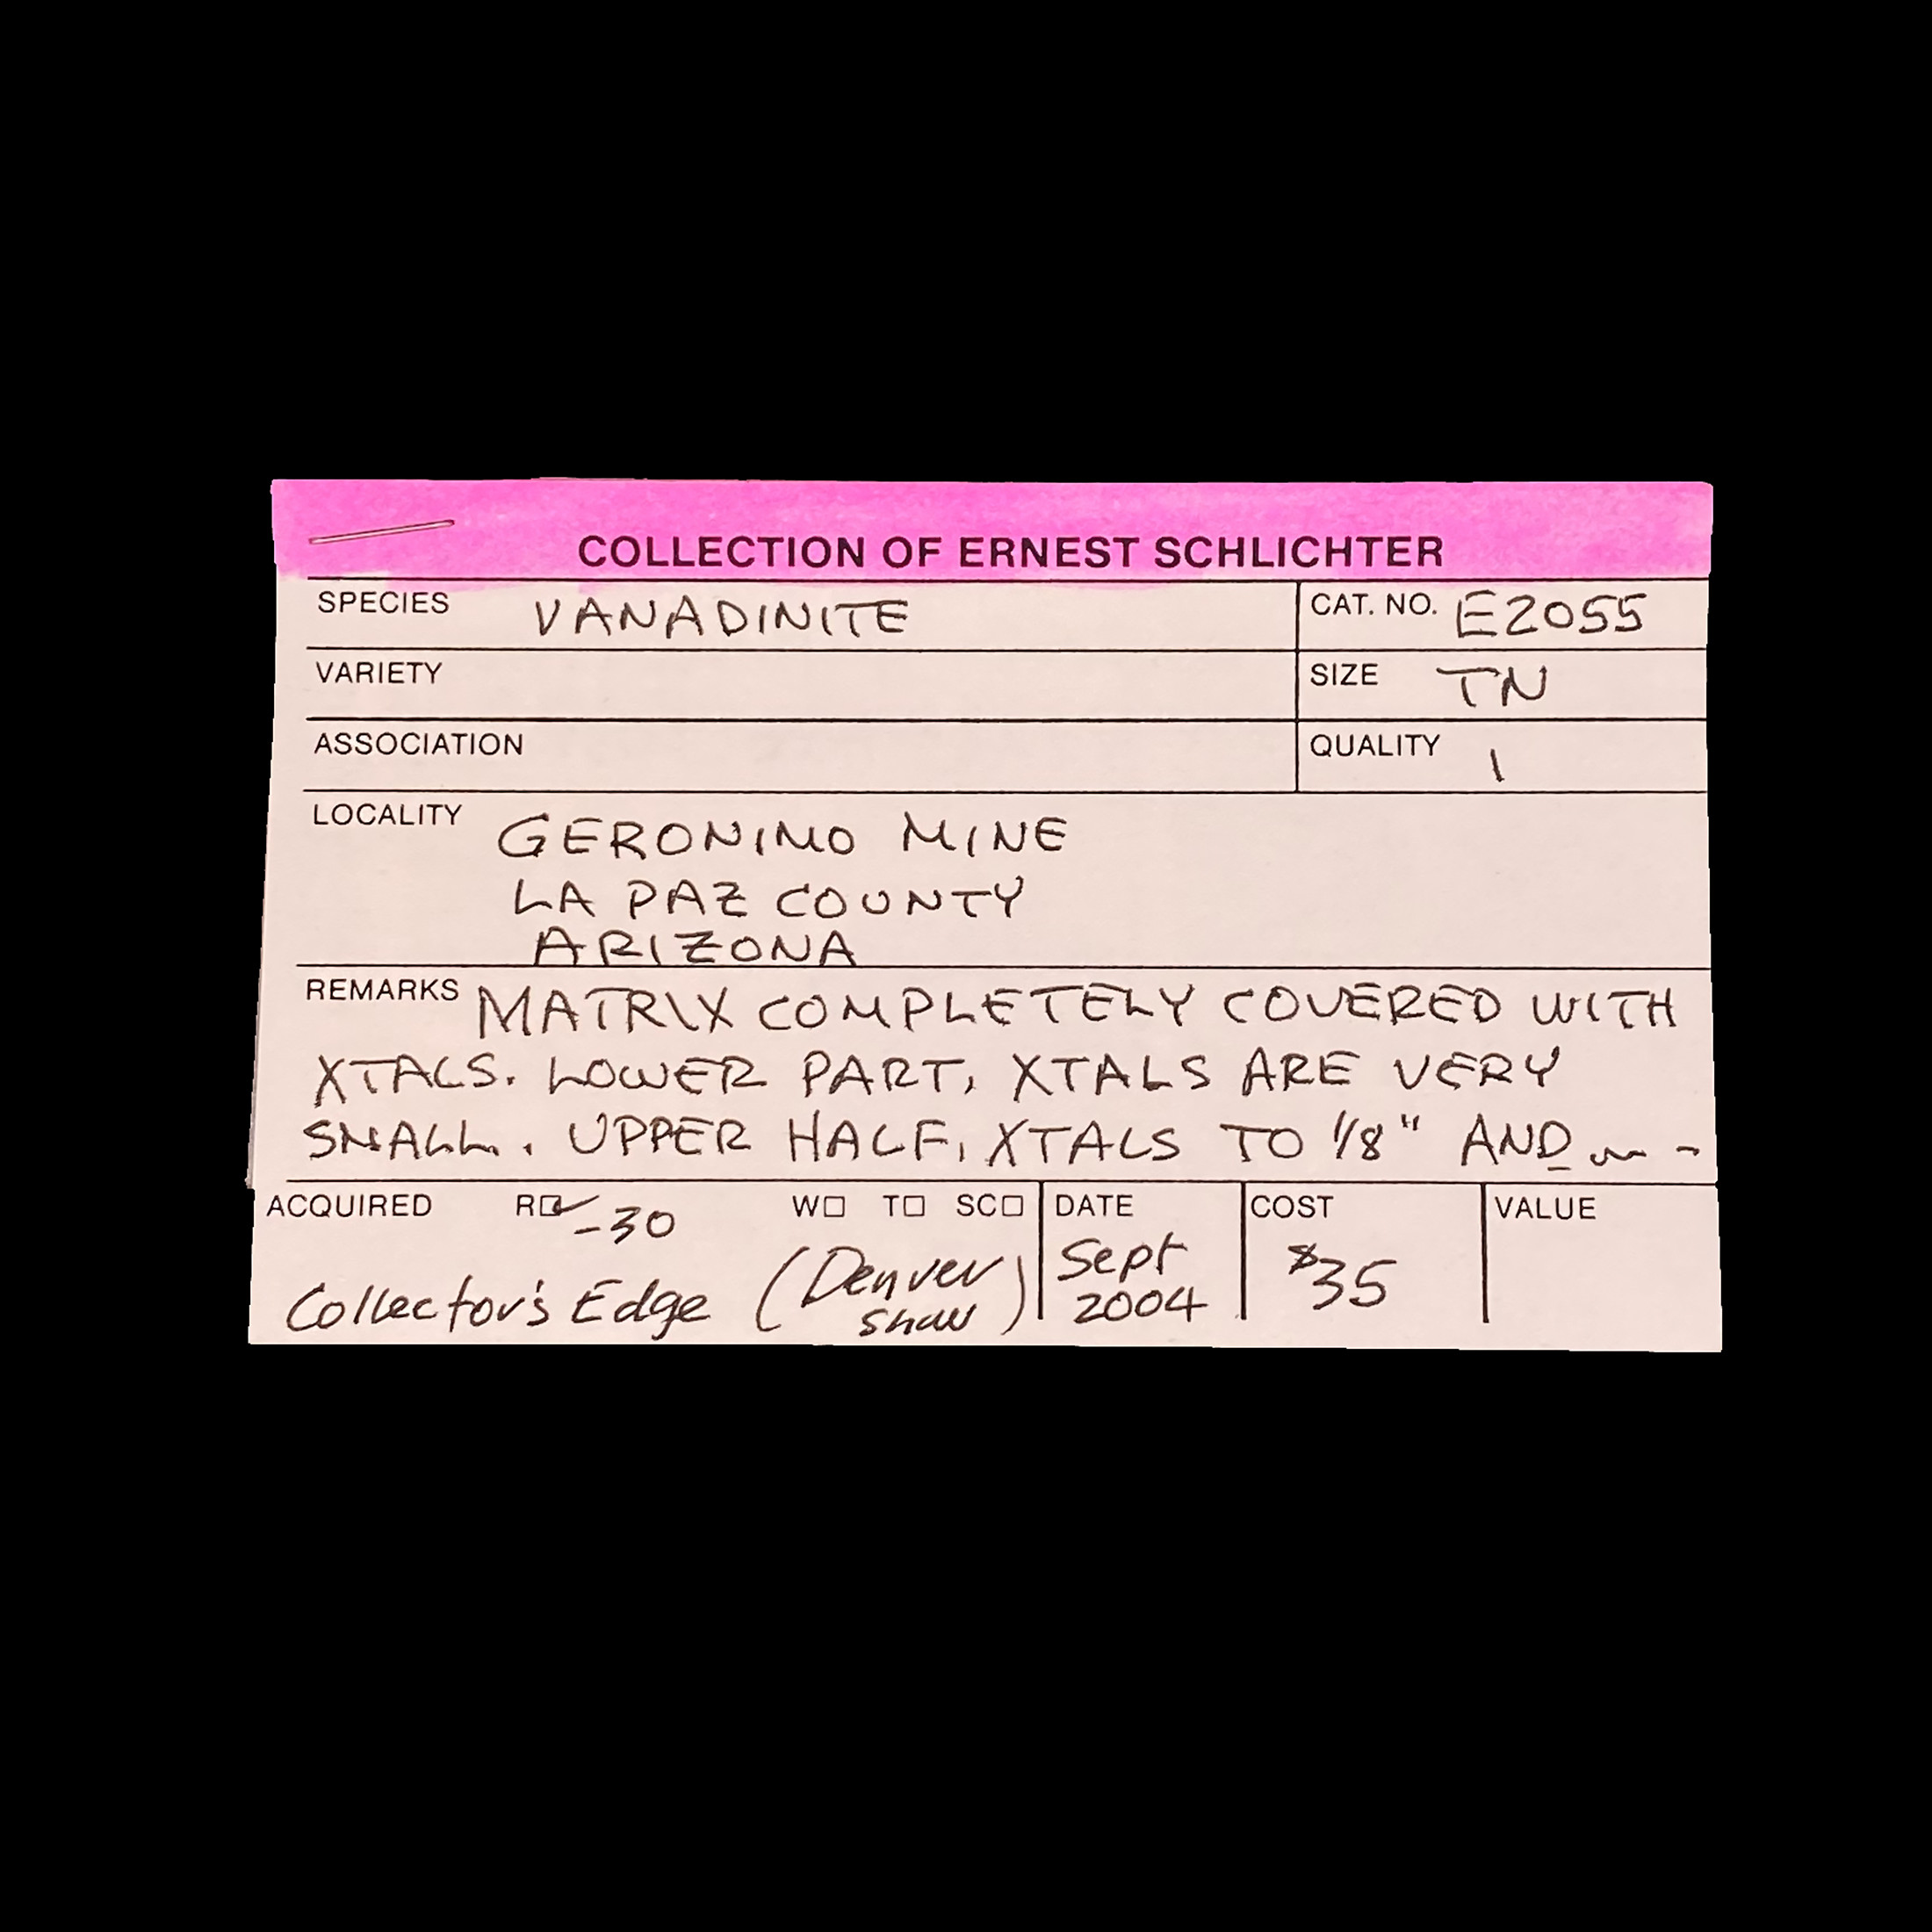 COLLECTION OF ERNEST SCHLICHTER
SPECIES VANADINITE CAT. NO. E2055
VARIETY SIZE TN
ASSOCIATION QUALITY 1
LOCALITY GERONIMO MINE
LA PAZ COUNTY
ARIZONA
REMARKS MATRIX COMPLETELY COVERED WITH
XTALS. LOWER PART, XTALS ARE VERY
SMALL. UPPER HALF, XTALS TO 1/8" AND
ACQUIRED R☑ -30 W☐ T☐ SC☐ DATE COST VALUE
Collector's Edge (Denver show) Sept 2004 $35